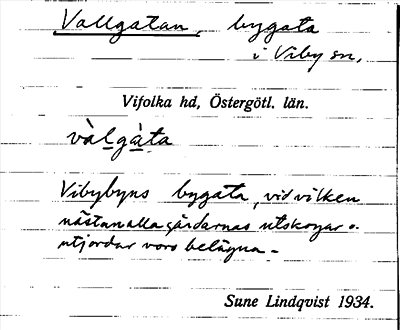 Vallgatan, bygata
i Viby sn,
Vifolka hd, Östergötl. län.
vàlgàta
Vibybyns bygata, vid vilken
nästan alla gårdarnas utskogar o.
utjordar voro belägna.
Sune Lindqvist 1934.